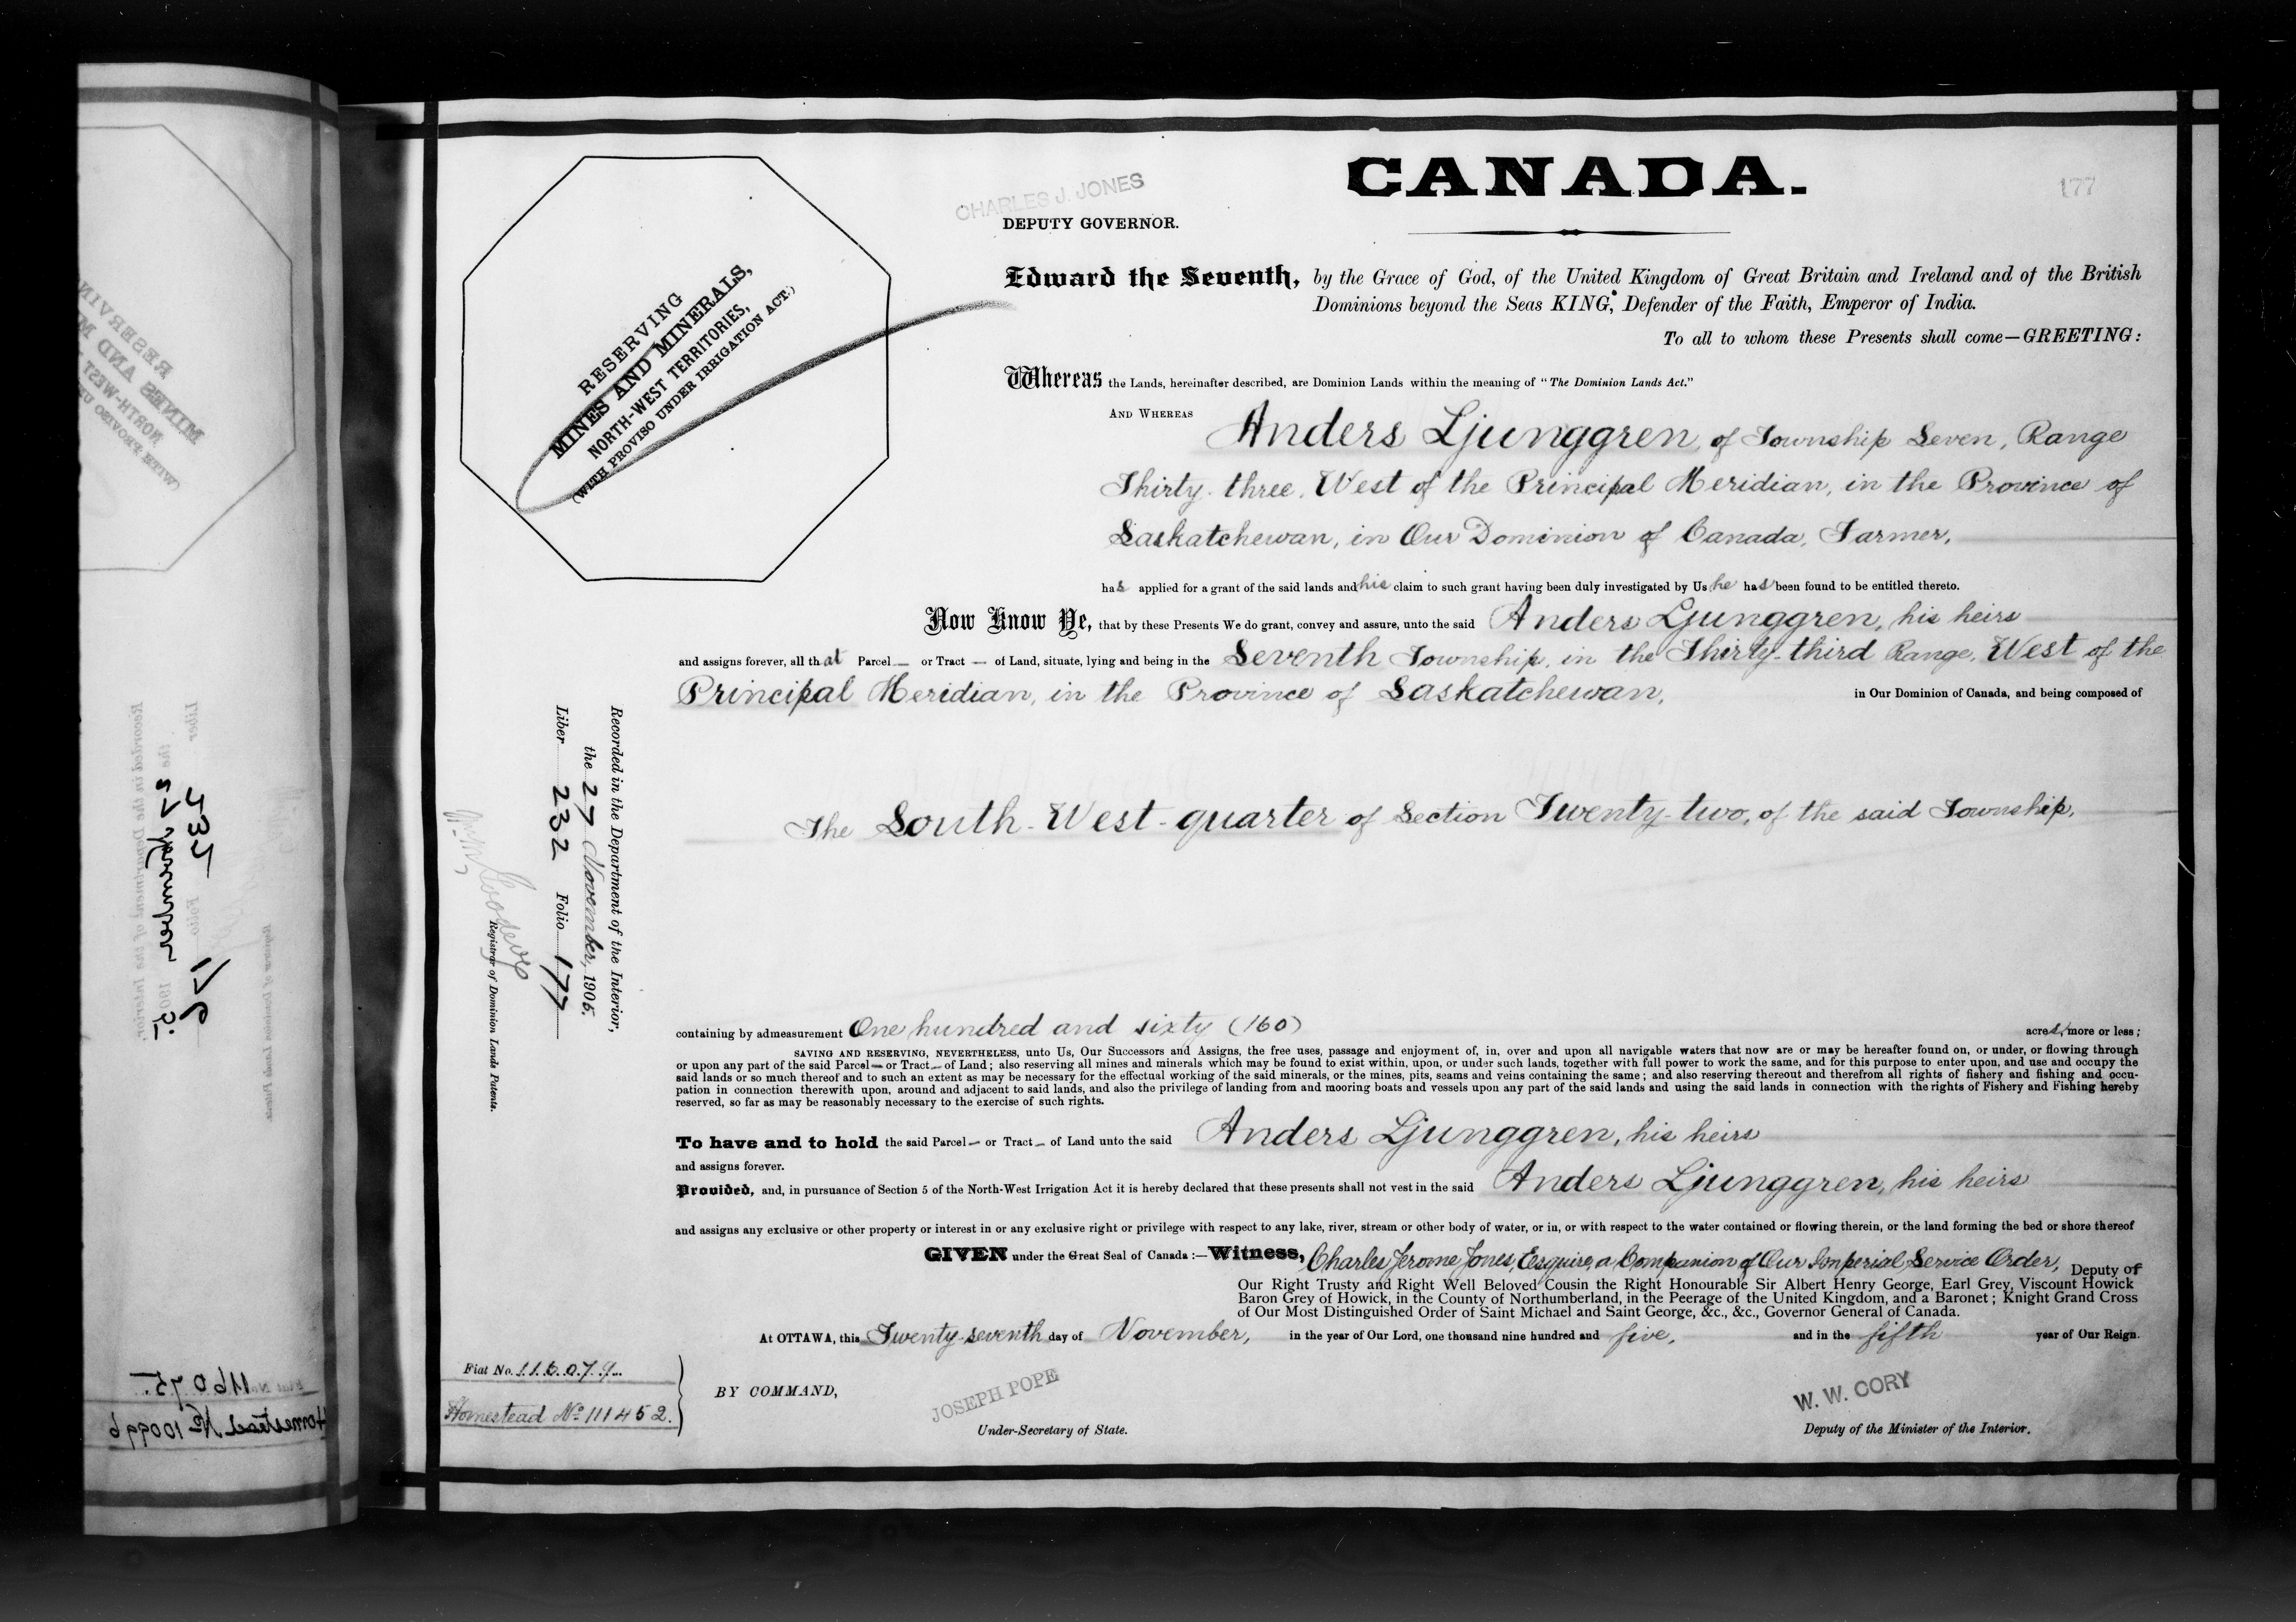 CANADA.
177
CHARLES J. JONES
DEPUTY GOVERNOR.
RESERVING
MINES AND MINERALS,
NORTH-WEST TERRITORIES,
(WITH PROVISO UNDER IRRIGATION ACT.)
Edward the Seventh, by the Grace of God, of the United Kingdom of Great Britain and Ireland and of the British
Dominions beyond the Seas KING, Defender of the Faith, Emperor of India.
To all to whom these Presents shall come—GREETING:
Whereas the Lands, hereinafter described, are Dominion Lands within the meaning of "The Dominion Lands Act."
AND WHEREAS Anders Ljunggren, of Township Seven, Range
Thirty-three, West of the Principal Meridian, in the Province of
Saskatchewan, in Our Dominion of Canada, Farmer,
has applied for a grant of the said lands and his claim to such grant having been duly investigated by Us he has been found to be entitled thereto.
Now Know Ye, that by these Presents We do grant, convey and assure, unto the said Anders Ljunggren, his heirs
and assigns forever, all that Parcel — or Tract — of Land, situate, lying and being in the Seventh Township, in the Thirty-third Range, West of the
Principal Meridian, in the Province of Saskatchewan, in Our Dominion of Canada, and being composed of
The South-West-quarter of Section Twenty-two, of the said Township,
containing by admeasurement One hundred and sixty (160) acres, more or less;
SAVING AND RESERVING, NEVERTHELESS, unto Us, Our Successors and Assigns, the free uses, passage and enjoyment of, in, over and upon all navigable waters that now are or may be hereafter found on, or under, or flowing through
or upon any part of the said Parcel — or Tract — of Land; also reserving all mines and minerals which may be found to exist within, upon, or under such lands, together with full power to work the same, and for this purpose to enter upon, and use and occupy the
said lands or so much thereof and to such an extent as may be necessary for the effectual working of the said minerals, or the mines, pits, seams and veins containing the same; and also reserving thereout and therefrom all rights of fishery and fishing and occu-
pation in connection therewith upon, around and adjacent to said lands, and also the privilege of landing from and mooring boats and vessels upon any part of the said lands and using the said lands in connection with the rights of Fishery and Fishing hereby
reserved, so far as may be reasonably necessary to the exercise of such rights.
To have and to hold the said Parcel — or Tract — of Land unto the said Anders Ljunggren, his heirs
and assigns forever.
Provided, and, in pursuance of Section 5 of the North-West Irrigation Act it is hereby declared that these presents shall not vest in the said Anders Ljunggren, his heirs
and assigns any exclusive or other property or interest in or any exclusive right or privilege with respect to any lake, river, stream or other body of water, or in, or with respect to the water contained or flowing therein, or the land forming the bed or shore thereof
GIVEN under the Great Seal of Canada:—Witness, Charles Jerome Jones, Esquire, a Companion of Our Imperial Service Order, Deputy of
Our Right Trusty and Right Well Beloved Cousin the Right Honourable Sir Albert Henry George, Earl Grey, Viscount Howick
Baron Grey of Howick, in the County of Northumberland, in the Peerage of the United Kingdom, and a Baronet; Knight Grand Cross
of Our Most Distinguished Order of Saint Michael and Saint George, &c., &c., Governor General of Canada.
At OTTAWA, this Twenty-seventh day of November, in the year of Our Lord, one thousand nine hundred and five, and in the fifth year of Our Reign.
Fiat No. 116079
Homestead No 111452.
BY COMMAND,
JOSEPH POPE
Under-Secretary of State.
W. W. CORY
Deputy of the Minister of the Interior.
Recorded in the Department of the Interior,
the 27 November, 1905.
Liber 232 Folio 177
Registrar of Dominion Lands Patents.
Recorded in the Department of the Interior,
the 27 November 1905.
Liber 232 Folio 176
Registrar of Dominion Lands Patents.
RESERVING
MINES AND
NORTH-WEST
Fiat No 116075.
Homestead No 100996